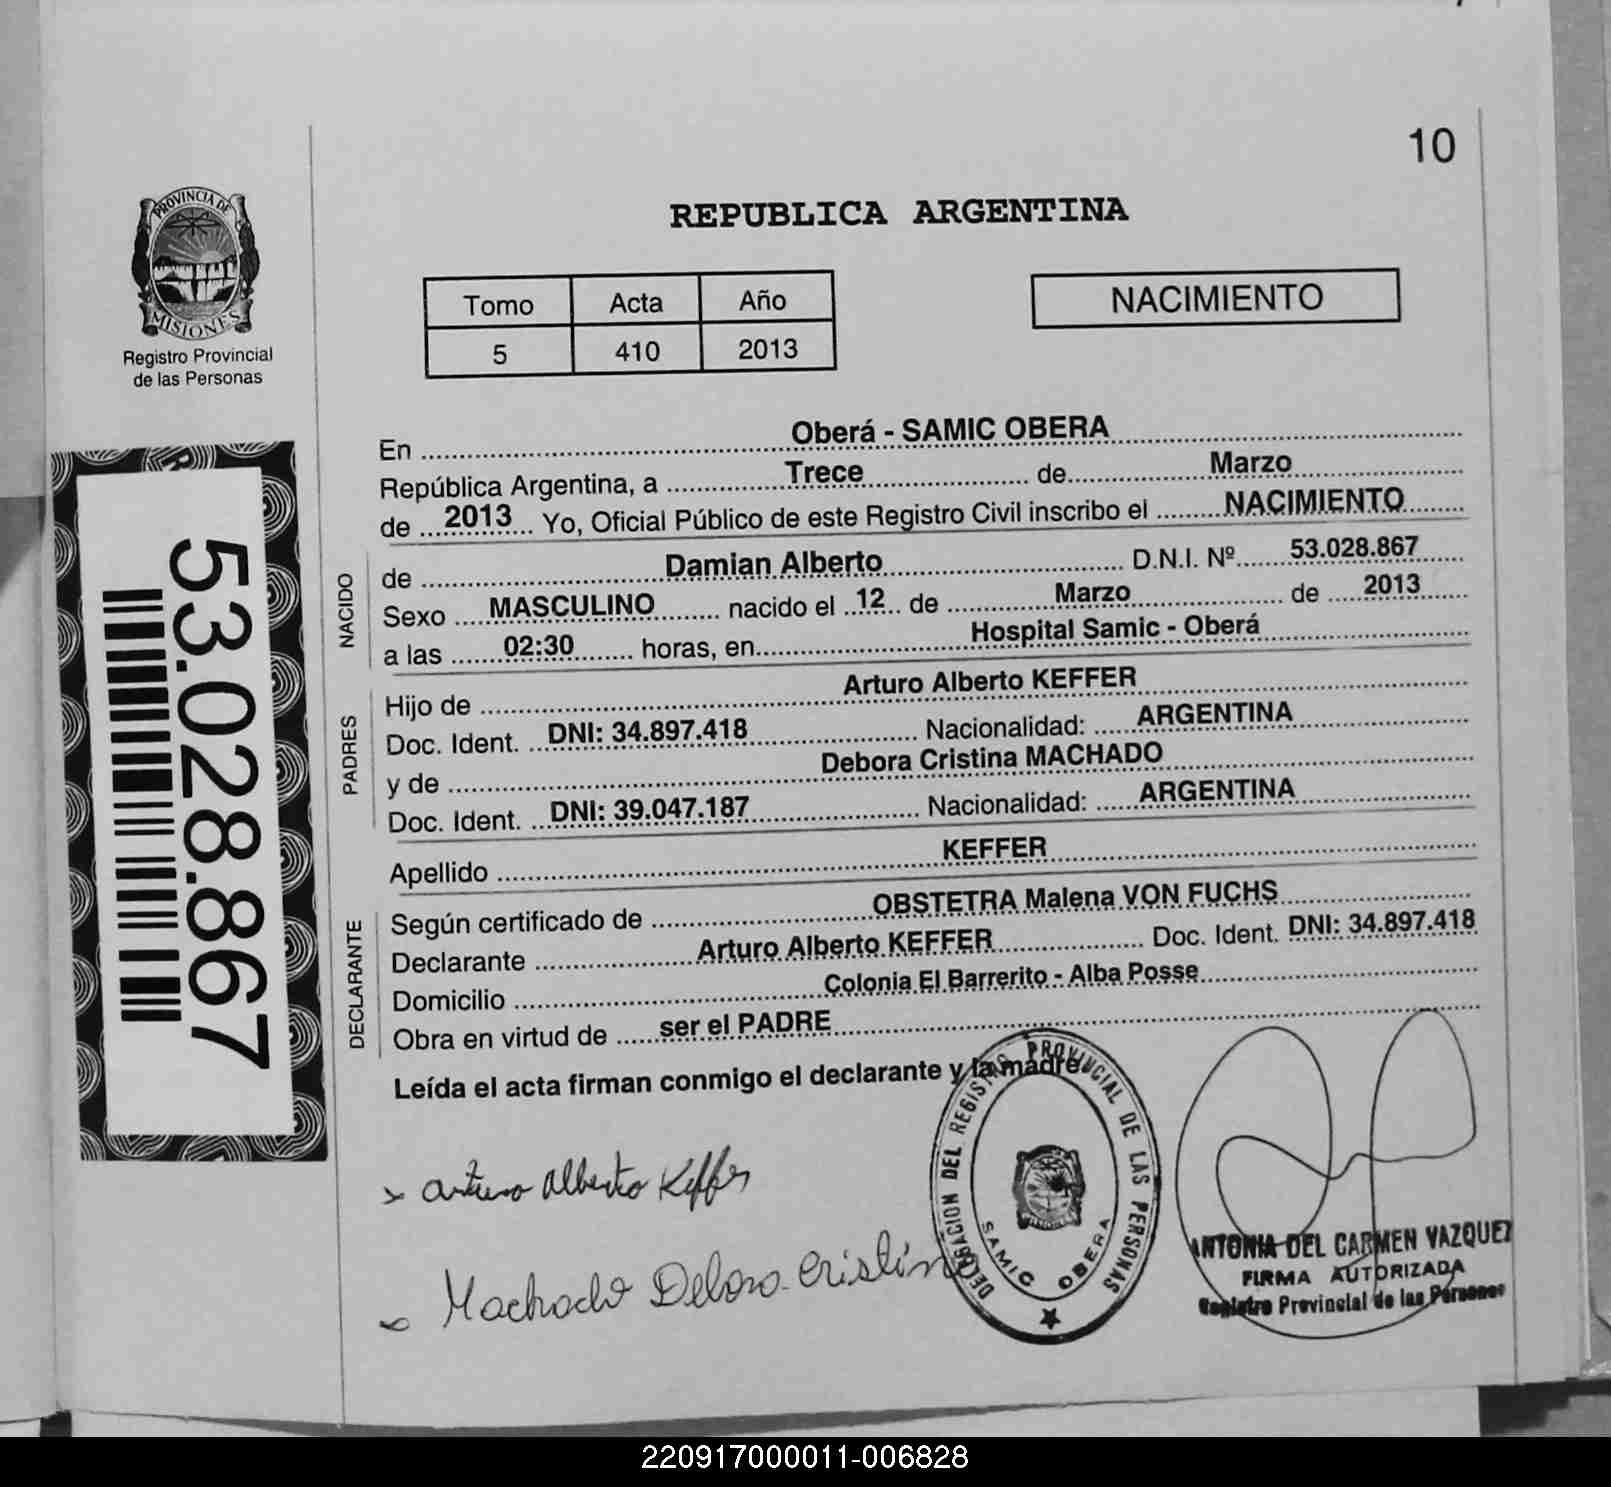 10
PROVINCIA DE
MISIONES
Registro Provincial
de las Personas
REPUBLICA ARGENTINA
Tomo Acta Año
5 410 2013
NACIMIENTO
53.028.867
En Oberá - SAMIC OBERA
República Argentina, a Trece de Marzo
de 2013 Yo, Oficial Público de este Registro Civil inscribo el NACIMIENTO
NACIDO
de Damian Alberto D.N.I. Nº 53.028.867
Sexo MASCULINO nacido el 12 de Marzo de 2013
a las 02:30 horas, en Hospital Samic - Oberá
PADRES
Hijo de Arturo Alberto KEFFER
Doc. Ident. DNI: 34.897.418 Nacionalidad: ARGENTINA
y de Debora Cristina MACHADO
Doc. Ident. DNI: 39.047.187 Nacionalidad: ARGENTINA
Apellido KEFFER
DECLARANTE
Según certificado de OBSTETRA Malena VON FUCHS
Declarante Arturo Alberto KEFFER Doc. Ident. DNI: 34.897.418
Domicilio Colonia El Barrerito - Alba Posse
Obra en virtud de ser el PADRE
Leída el acta firman conmigo el declarante y la madre
Arturo Alberto Keffer
Machado Debora Cristina
DELEGACION DEL REGISTRO PROVINCIAL DE LAS PERSONAS
SAMIC OBERA
ANTONIA DEL CARMEN VAZQUEZ
FIRMA AUTORIZADA
Registro Provincial de las Personas
220917000011-006828